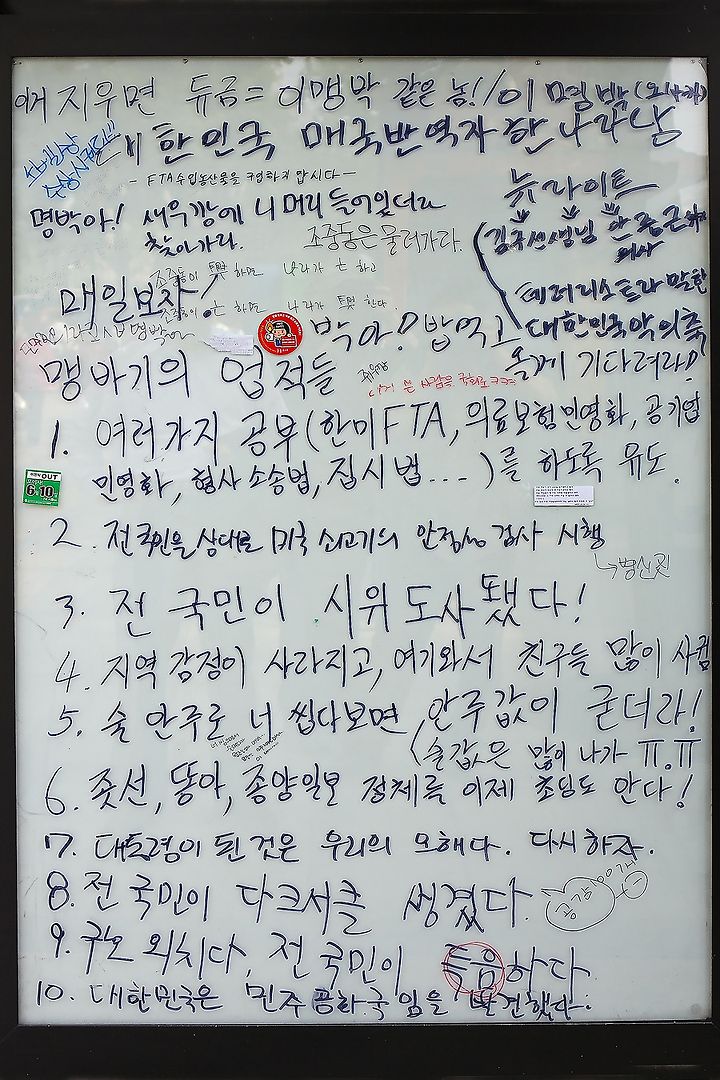 이거 지우면 듀금 = 이맹박 같은 놈! / 이 명박
대한민국 매국반역자 한나라당
- FTA 수입농산물을 구입하지 맙시다 -
명박아! 새우깡에 니 머리 들어있더라
찾아가라.
조중동은 물러가라.
뉴라이트
김구선생님 안중근
의사
테러리스트라 말한
대한민국 악의축
조중동이 興 하면 나라가 亡 하고
조중동이 亡 하면 나라가 興 한다.
매일보자
박아! 밥먹고
올께 기다려라!
맹바기의 업적들
1. 여러가지 공부(한미FTA, 의료보험민영화, 공기업
민영화, 형사 소송법, 집시법....)를 하도록 유도.
OUT
6.10
2. 전국민을 상대로 미국 쇠고기의 안정성 검사 시행
3. 전 국민이 시위 도사 됐다!
4. 지역 감정이 사라지고, 여기와서 친구들 많이 사귐
5. 술 안주로 너 씹다보면, 안주값이 굳더라!
(술값은 많이 나가 ㅠ.ㅠ
6. 좃선, 똥아, 종양일보 정체를 이제 초딩도 안다!
7. 대통령이 된 것은 우리의 오해다. 다시하자.
8. 전 국민이 다크서클 생겼다.
공감 100개
9. 구호 외치다, 전 국민이 득음하다
10. 대한민국은 민주공화국임을 발견했다.